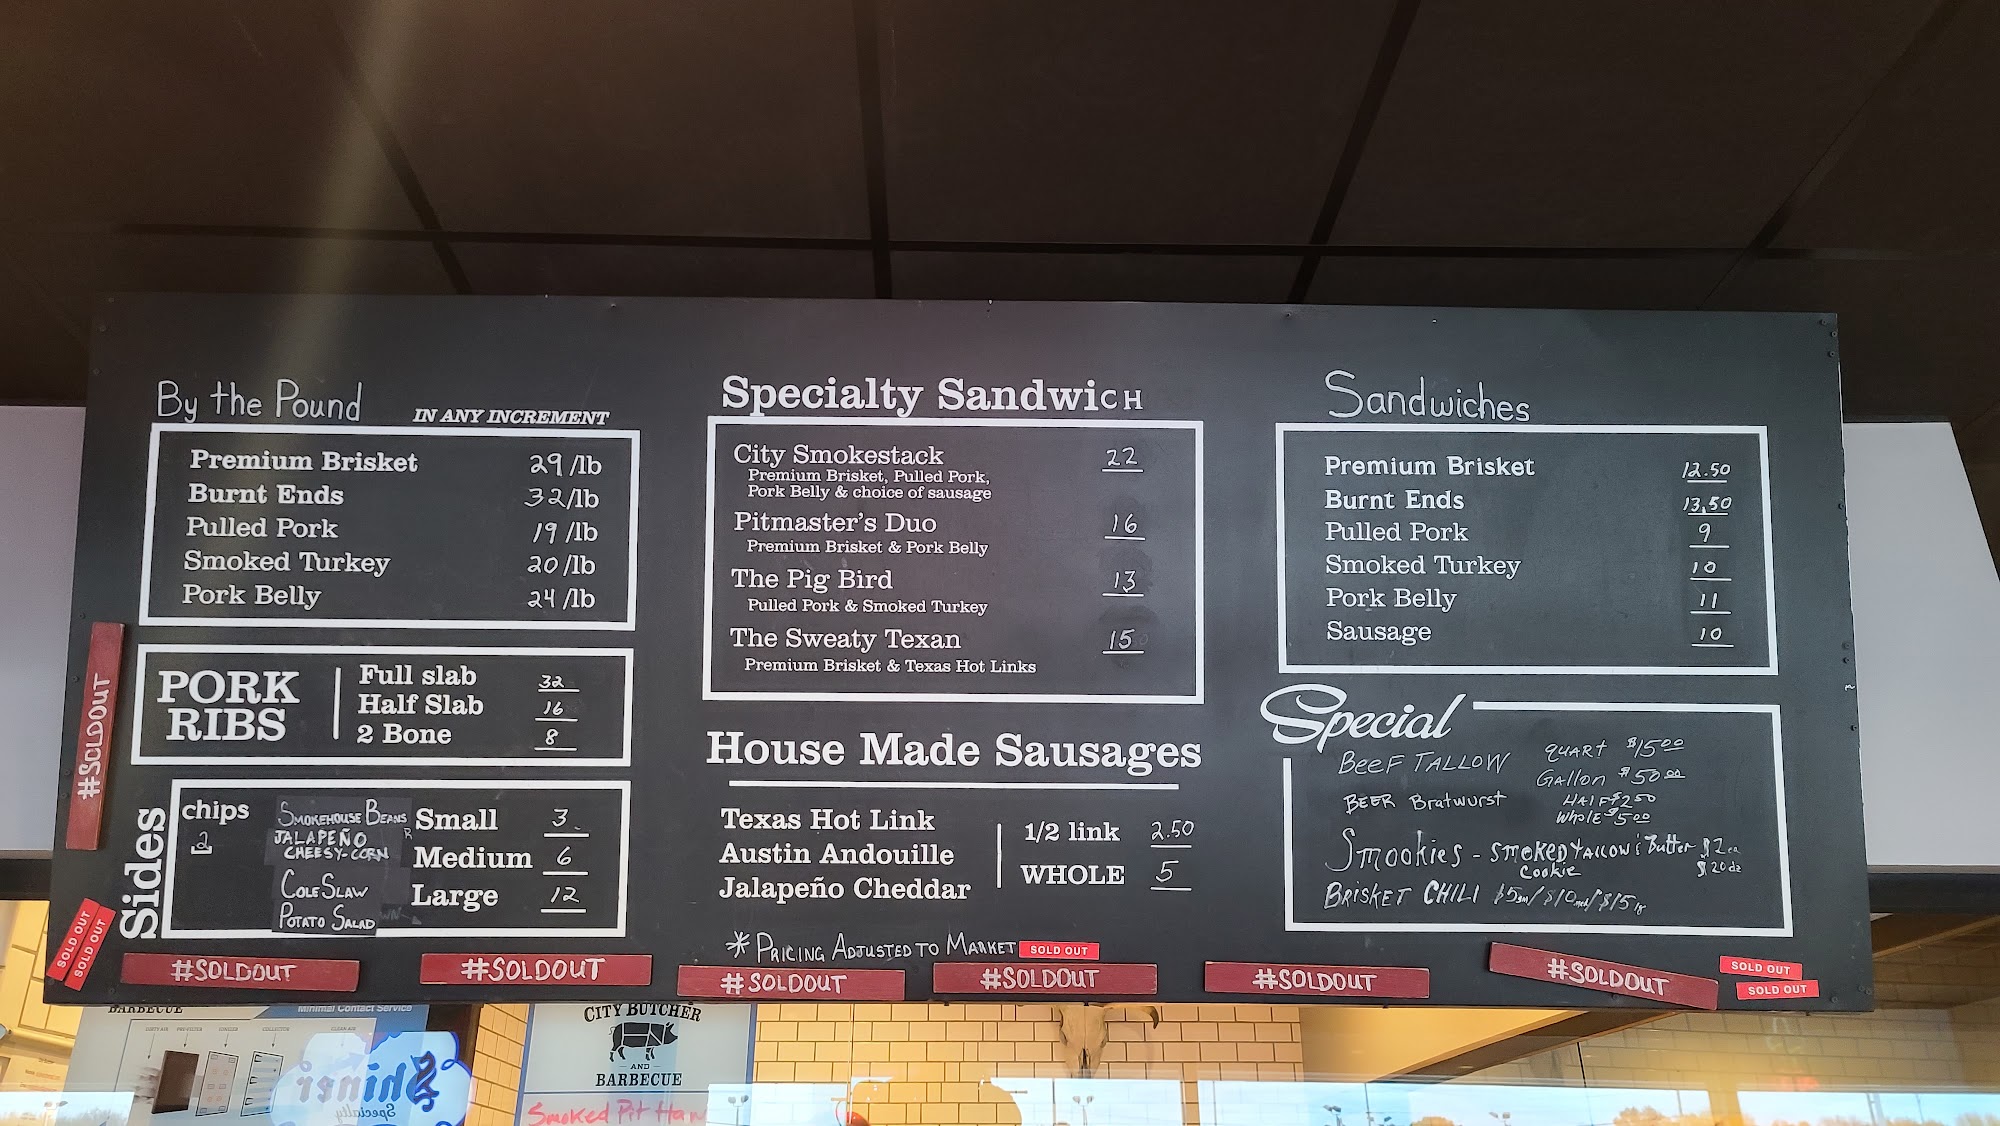 By the Pound IN ANY INCREMENT
Premium Brisket 29/lb
Burnt Ends 32/lb
Pulled Pork 19/lb
Smoked Turkey 20/lb
Pork Belly 24/lb
PORK RIBS
Full slab 32
Half Slab 16
2 Bone 8
Sides
chips
2
SMOKEHOUSE BEANS
JALAPEÑO
CHEESY-CORN
COLE SLAW
POTATO SALAD
Small 3
Medium 6
Large 12
Specialty Sandwich
City Smokestack 22
Premium Brisket, Pulled Pork,
Pork Belly & choice of sausage
Pitmaster's Duo 16
Premium Brisket & Pork Belly
The Pig Bird 13
Pulled Pork & Smoked Turkey
The Sweaty Texan 15
Premium Brisket & Texas Hot Links
House Made Sausages
Texas Hot Link
Austin Andouille
Jalapeño Cheddar
1/2 link 2.50
WHOLE 5
* PRICING ADJUSTED TO MARKET
SOLD OUT
Sandwiches
Premium Brisket 12.50
Burnt Ends 13.50
Pulled Pork 9
Smoked Turkey 10
Pork Belly 11
Sausage 10
Special
BEEF TALLOW QUART $15.00
Gallon $50.00
BEER Bratwurst HALF $2.50
Whole $5.00
Smookies - SMOKED TALLOW & Butter $2 ea
Cookie $20 dz
BRISKET CHILI $5 sm/$10 med/$15 lg
#SOLDOUT
SOLD OUT
SOLD OUT
#SOLDOUT
#SOLDOUT
#SOLDOUT
#SOLDOUT
#SOLDOUT
#SOLDOUT
SOLD OUT
SOLD OUT
BARBECUE
Minimal Contact Service
Shiner
Specialty
CITY BUTCHER
AND
BARBECUE
Smoked Pit Ham